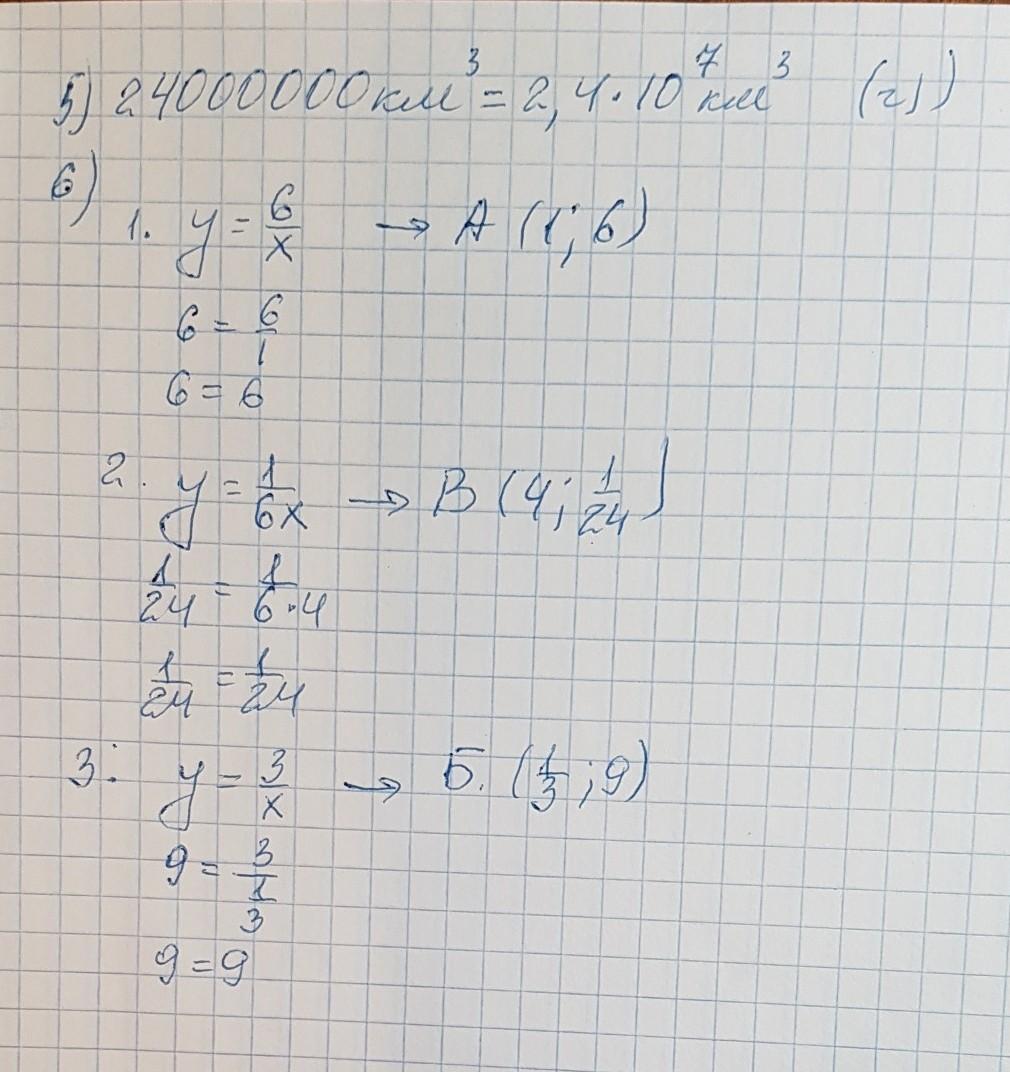 5) 24000000км³ = 2,4·10⁷ км³ (г)
6)
1. y = 6/x → А (1; 6)
6 = 6/1
6 = 6
2. y = 1/6x → В (4; 1/24)
1/24 = 1/6·4
1/24 = 1/24
3. y = 3/x → Б. (1/3; 9)
9 = 3/(1/3)
9 = 9